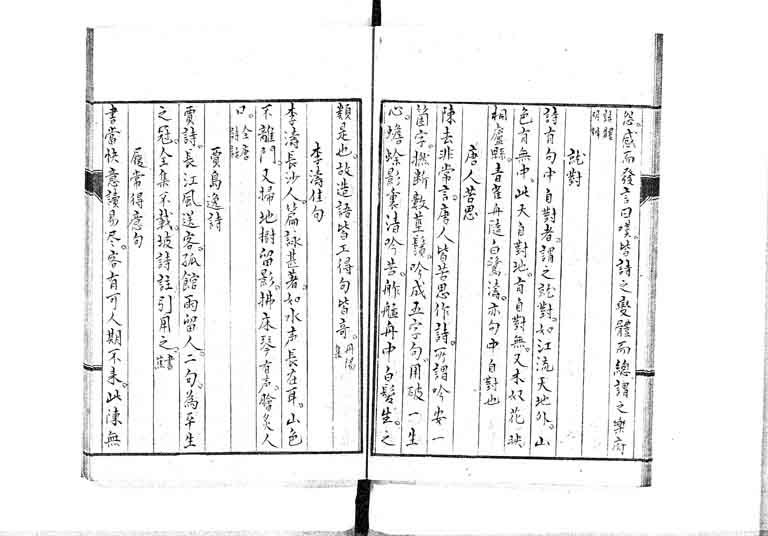 怨感而發言曰嘆。皆詩之變體而總謂之樂府
說對
詩有句中自對者。謂之說對。如江流天地外。山
色有無中。此天自對地。有自對無。又木奴花映
桐廬縣。青雀舟隨白鷺濤。亦句中自對也
唐人苦思
陳去非常言。唐人皆苦思作詩。所謂吟安一
箇字。撚斷數莖鬚。吟成五字句。用破一生
心。蟾蜍影裏清吟苦。舴艋舟中白髮生。之
類是也。故造語皆工得句皆奇。丹陽集
李濤佳句
李濤長沙人。篇詠甚著。如水声長在耳。山色
不離門。又掃地樹留影。拂床琴有声。膾炙人
口。全唐詩話
賈島逸詩
賈詩。長江風送客。孤館雨留人。二句。為平生
之冠。全集不載。坡詩註引用之。
履常得意句
書當快意讀易尽。客有可人期不来。此陳無